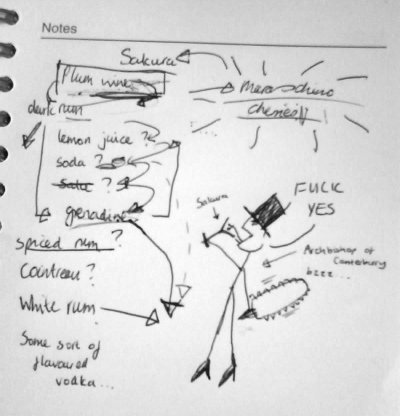 Notes
Sakura
Plum wine
Maraschino
cherries!!
dark rum
lemon juice ?
soda ?
Sake ?
grenadine
Sakura
FUCK
YES
spiced rum ?
Archbishop of
Canterbury
bzzz...
Cointreau ?
White rum
Some sort of
flavoured
vodka...